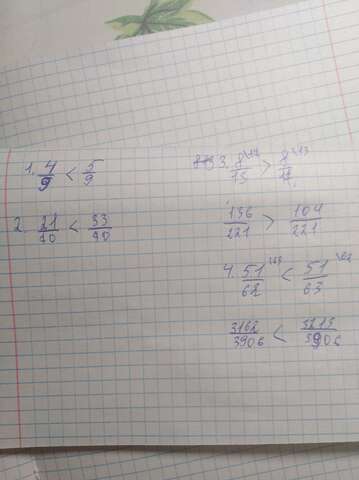 1. 4/9 < 5/9
2. 21/40 < 33/40
3. 8\17/13 > 8\13/17
136/221 > 104/221
4. 51\63/62 < 51\62/63
3162/3906 < 3213/3906